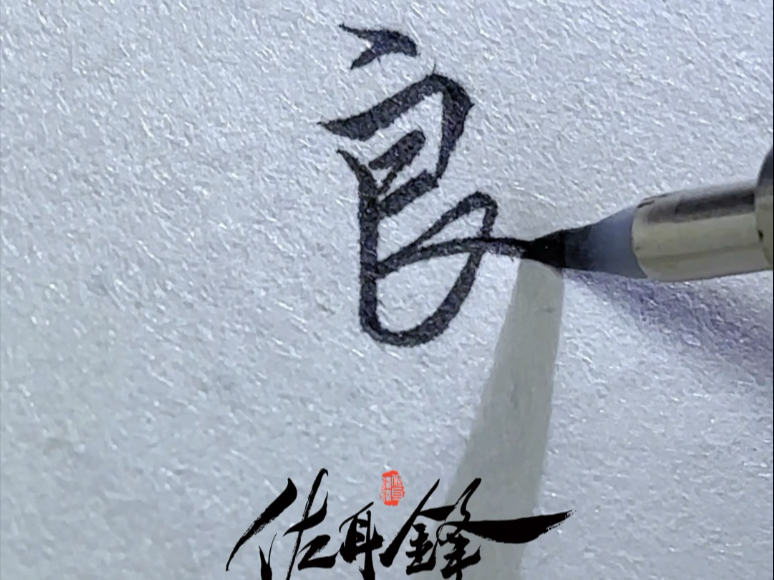 良
佐耳鋒